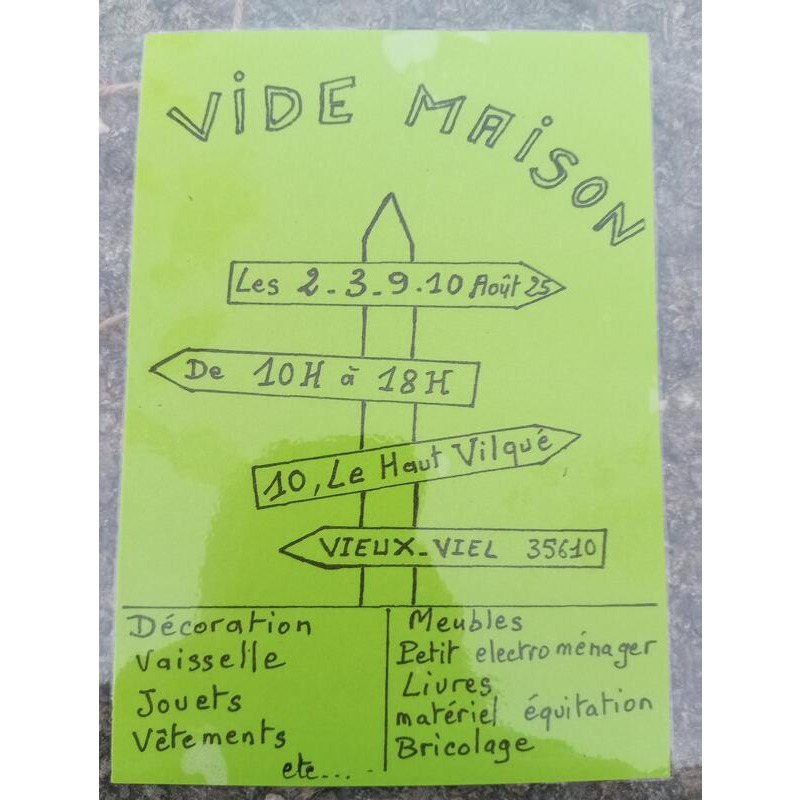 ViDE MAiSON
Les 2_3_9.10 Août 25
De 10H à 18H
10, Le Haut Vilqué
VIEUX_VIEL 35610
Décoration
Vaisselle
Jouets
Vêtements
etc....
Meubles
Petit electroménager
Livres
matériel équitation
Bricolage